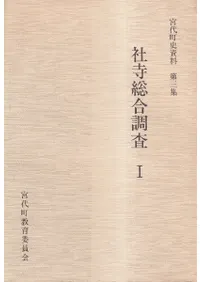 宮代町史資料 第三集
社寺総合調査 Ⅰ
宮代町教育委員会